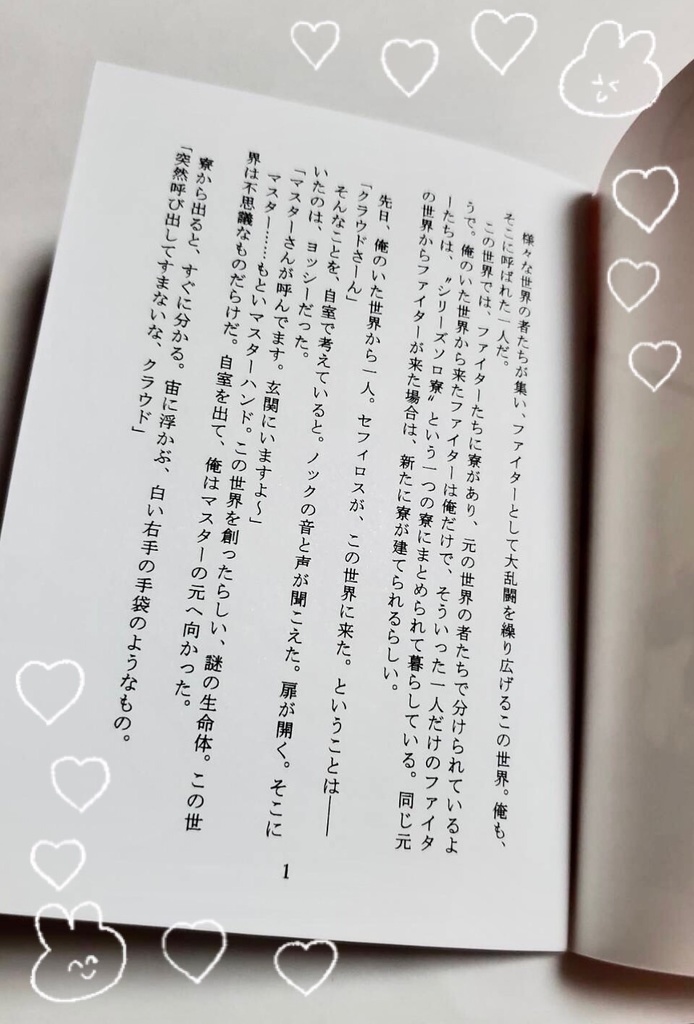 様々な世界の者たちが集い、ファイターとして大乱闘を繰り広げるこの世界。俺も、
そこに呼ばれた一人だ。
この世界では、ファイターたちに寮があり、元の世界の者たちで分けられているよ
うで。俺のいた世界から来たファイターは俺だけで、そういった一人だけのファイタ
ーたちは、〝シリーズソロ寮〟という一つの寮にまとめられて暮らしている。同じ元
の世界からファイターが来た場合は、新たに寮が建てられるらしい。
先日、俺のいた世界から一人。セフィロスが、この世界に来た。ということは――
「クラウドさーん」
そんなことを、自室で考えていると。ノックの音と声が聞こえた。扉が開く。そこに
いたのは、ヨッシーだった。
「マスターさんが呼んでます。玄関にいますよ～」
マスター……もといマスターハンド。この世界を創ったらしい、謎の生命体。この世
界は不思議なものだらけだ。自室を出て、俺はマスターの元へ向かった。
寮から出ると、すぐに分かる。宙に浮かぶ、白い右手の手袋のようなもの。
「突然呼び出してすまないな、クラウド」
1